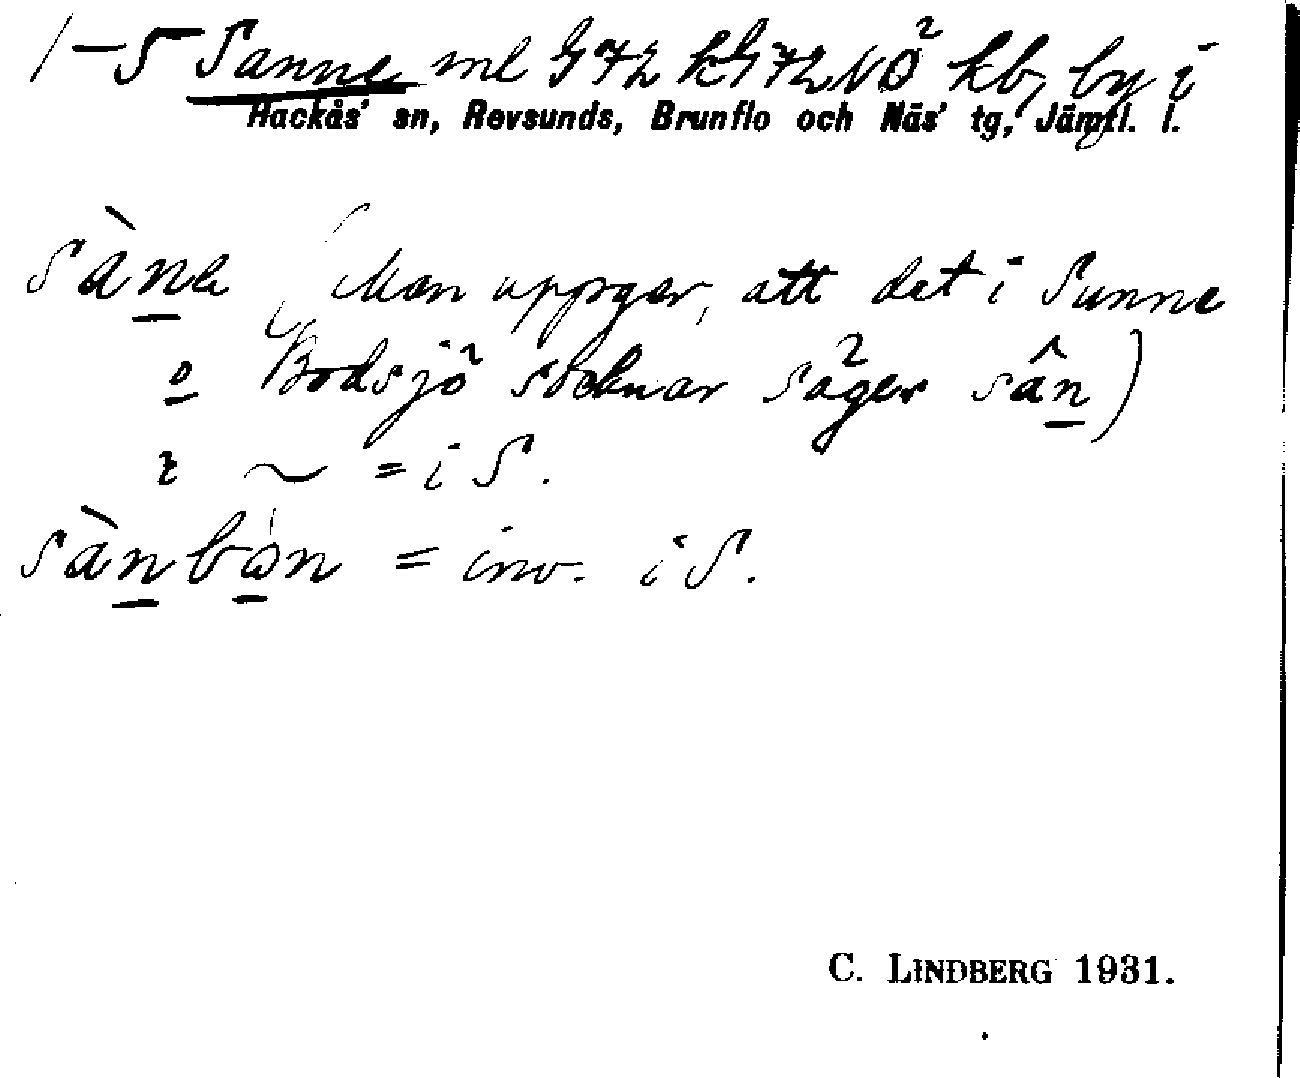 1–5 Sanne ml G 72 k G 72 NÖ kb, by i
Hackås' sn, Revsunds, Brunflo och Näs' tg, Jämtl. l.
sàne (Man uppger, att det i Sunne
o Bodsjö socknar säger sân)
~ = i S.
sànbòn = inv. i S.
C. LINDBERG 1931.